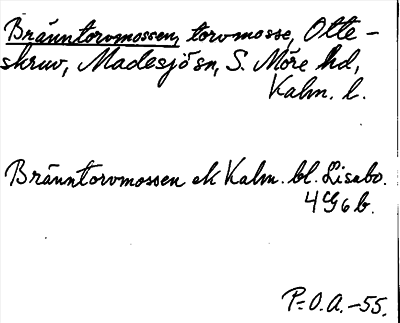 Bränntorvmossen, torvmosse, Otte-
skruv, Madesjö sn, S. Möre hd,
Kalm. l.
Bränntorvmossen ek Kalm. bl. Lisabo.
4G6b.
P.O.A.-55.